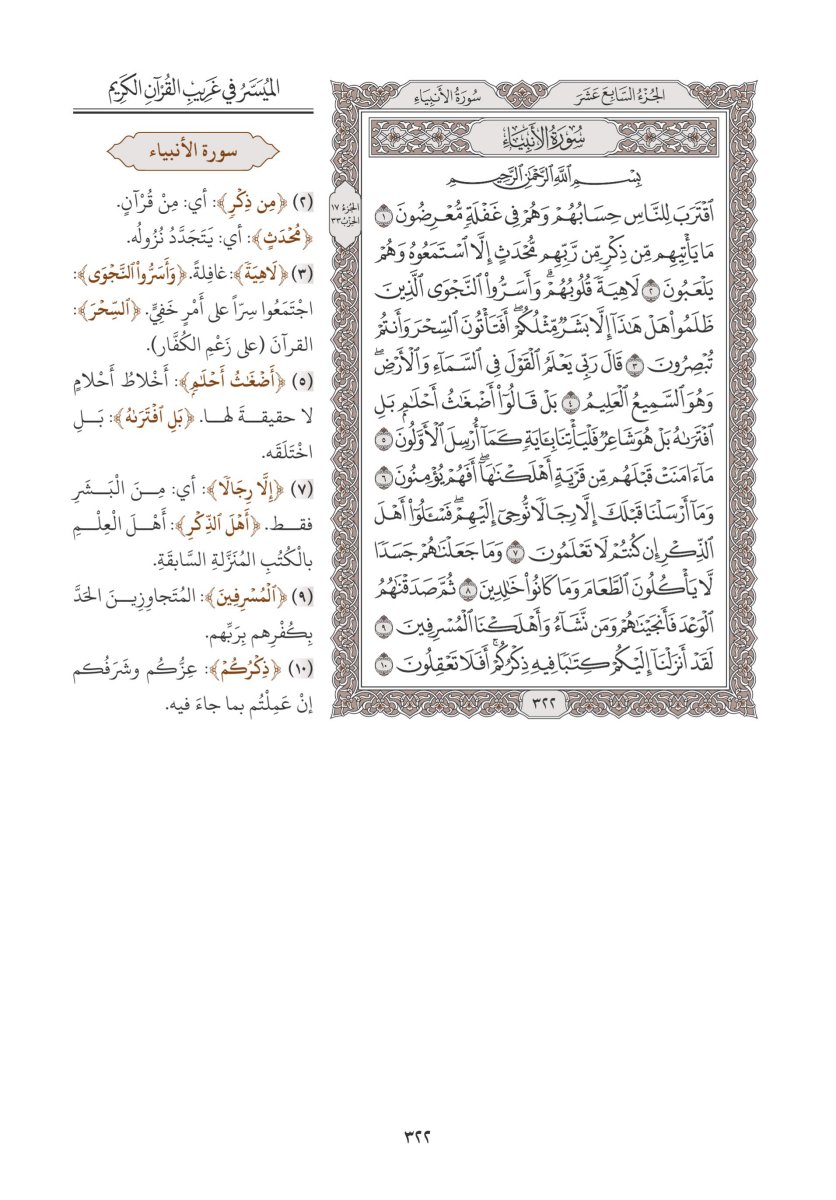 الجُزْءُ السَّابِعَ عَشَرَ
سُورَةُ الأَنبِيَاءِ
سُورَةُ الأَنبِيَاءِ
بِسْمِ ٱللَّهِ ٱلرَّحْمَٰنِ ٱلرَّحِيمِ
ٱقْتَرَبَ لِلنَّاسِ حِسَابُهُمْ وَهُمْ فِى غَفْلَةٍ مُّعْرِضُونَ ١
مَا يَأْتِيهِم مِّن ذِكْرٍ مِّن رَّبِّهِم مُّحْدَثٍ إِلَّا ٱسْتَمَعُوهُ وَهُمْ
يَلْعَبُونَ ٢ لَاهِيَةً قُلُوبُهُمْ ۗ وَأَسَرُّوا۟ ٱلنَّجْوَى ٱلَّذِينَ
ظَلَمُوا۟ هَلْ هَٰذَآ إِلَّا بَشَرٌ مِّثْلُكُمْ ۖ أَفَتَأْتُونَ ٱلسِّحْرَ وَأَنتُمْ
تُبْصِرُونَ ٣ قَالَ رَبِّى يَعْلَمُ ٱلْقَوْلَ فِى ٱلسَّمَآءِ وَٱلْأَرْضِ ۖ
وَهُوَ ٱلسَّمِيعُ ٱلْعَلِيمُ ٤ بَلْ قَالُوٓا۟ أَضْغَٰثُ أَحْلَٰمٍۭ بَلِ
ٱفْتَرَىٰهُ بَلْ هُوَ شَاعِرٌ فَلْيَأْتِنَا بِـَٔايَةٍ كَمَآ أُرْسِلَ ٱلْأَوَّلُونَ ٥
مَآ ءَامَنَتْ قَبْلَهُم مِّن قَرْيَةٍ أَهْلَكْنَٰهَآ ۖ أَفَهُمْ يُؤْمِنُونَ ٦
وَمَآ أَرْسَلْنَا قَبْلَكَ إِلَّا رِجَالًا نُّوحِىٓ إِلَيْهِمْ ۖ فَسْـَٔلُوٓا۟ أَهْلَ
ٱلذِّكْرِ إِن كُنتُمْ لَا تَعْلَمُونَ ٧ وَمَا جَعَلْنَٰهُمْ جَسَدًا
لَّا يَأْكُلُونَ ٱلطَّعَامَ وَمَا كَانُوا۟ خَٰلِدِينَ ٨ ثُمَّ صَدَقْنَٰهُمُ
ٱلْوَعْدَ فَأَنجَيْنَٰهُمْ وَمَن نَّشَآءُ وَأَهْلَكْنَا ٱلْمُسْرِفِينَ ٩
لَقَدْ أَنزَلْنَآ إِلَيْكُمْ كِتَٰبًا فِيهِ ذِكْرُكُمْ ۖ أَفَلَا تَعْقِلُونَ ١٠
٣٢٢
الجُزْءُ ١٧
الحِزْبُ ٣٣
المُيَسَّرُ في غَرِيبِ القُرْآنِ الكَرِيم
سورة الأنبياء
(٢) ﴿مِن ذِكْرٍ﴾: أي: مِنْ قُرْآنٍ.
﴿مُحْدَثٍ﴾: أي: يَتَجَدَّدُ نُزُولُه.
(٣) ﴿لَاهِيَةً﴾: غافِلةً. ﴿وَأَسَرُّوا۟ ٱلنَّجْوَى﴾:
اجتَمَعُوا سِرّاً على أَمْرٍ خَفِيٍّ. ﴿ٱلسِّحْرَ﴾:
القرآنَ (على زَعْمِ الكُفَّار).
(٥) ﴿أَضْغَٰثُ أَحْلَٰمٍۭ﴾: أَخْلاطُ أَحْلامٍ
لا حقيقةَ لها. ﴿بَلِ ٱفْتَرَىٰهُ﴾: بَلِ
اخْتَلَقَه.
(٧) ﴿إِلَّا رِجَالًا﴾: أي: مِنَ الْبَشَرِ
فقط. ﴿أَهْلَ ٱلذِّكْرِ﴾: أَهْلَ الْعِلْمِ
بالْكُتُبِ المُنَزَّلةِ السَّابقَةِ.
(٩) ﴿ٱلْمُسْرِفِينَ﴾: المُتَجاوِزِينَ الحَدَّ
بِكُفْرِهِم بِرَبِّهم.
(١٠) ﴿ذِكْرُكُمْ﴾: عِزُّكُم وشَرَفُكُم
إنْ عَمِلْتُم بما جاءَ فيه.
٣٢٢